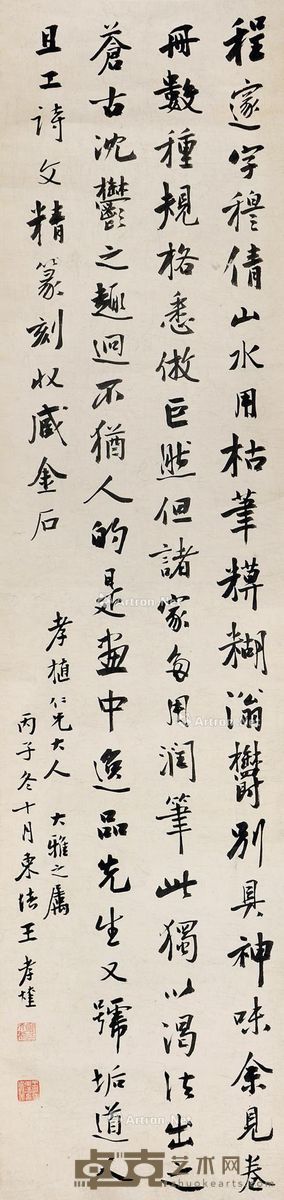 程邃字穆倩山水用枯筆模糊滃鬱別具神味余見卷
冊數種規格悉倣巨然但諸家多用潤筆此獨以渴法出之
蒼古沈鬱之趣迥不猶人的是畫中逸品先生又號垢道人
且工詩文精篆刻收藏金石
孝植仁兄大人 大雅之屬
丙子冬十月東法王孝煃
卓克艺术网
zhuokearts.com